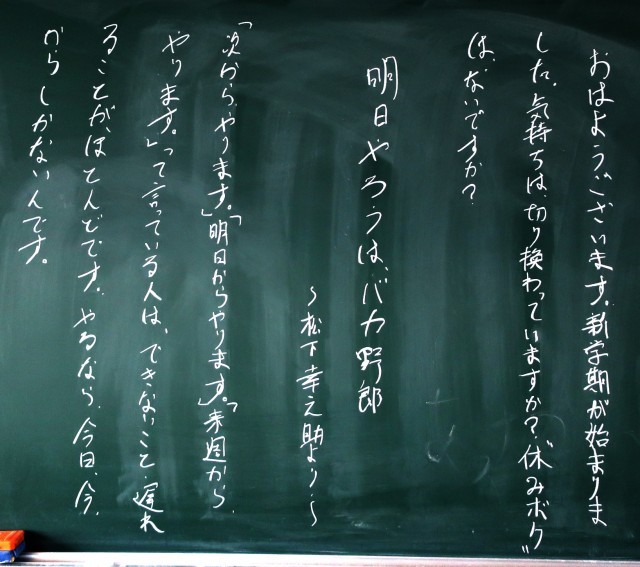 おはようございます。新学期が始まりま
した。気持ちは、切り換わっていますか？“休みボケ”
は、ないですか？
明日やろうは、バカ野郎
〜松下幸之助より〜
「次から、やります。」「明日からやります。」「来週から、
やります。」って言っている人は、できないこと、遅れ
ることが、ほとんどです。やるなら、今日、今、
からしかないんです。